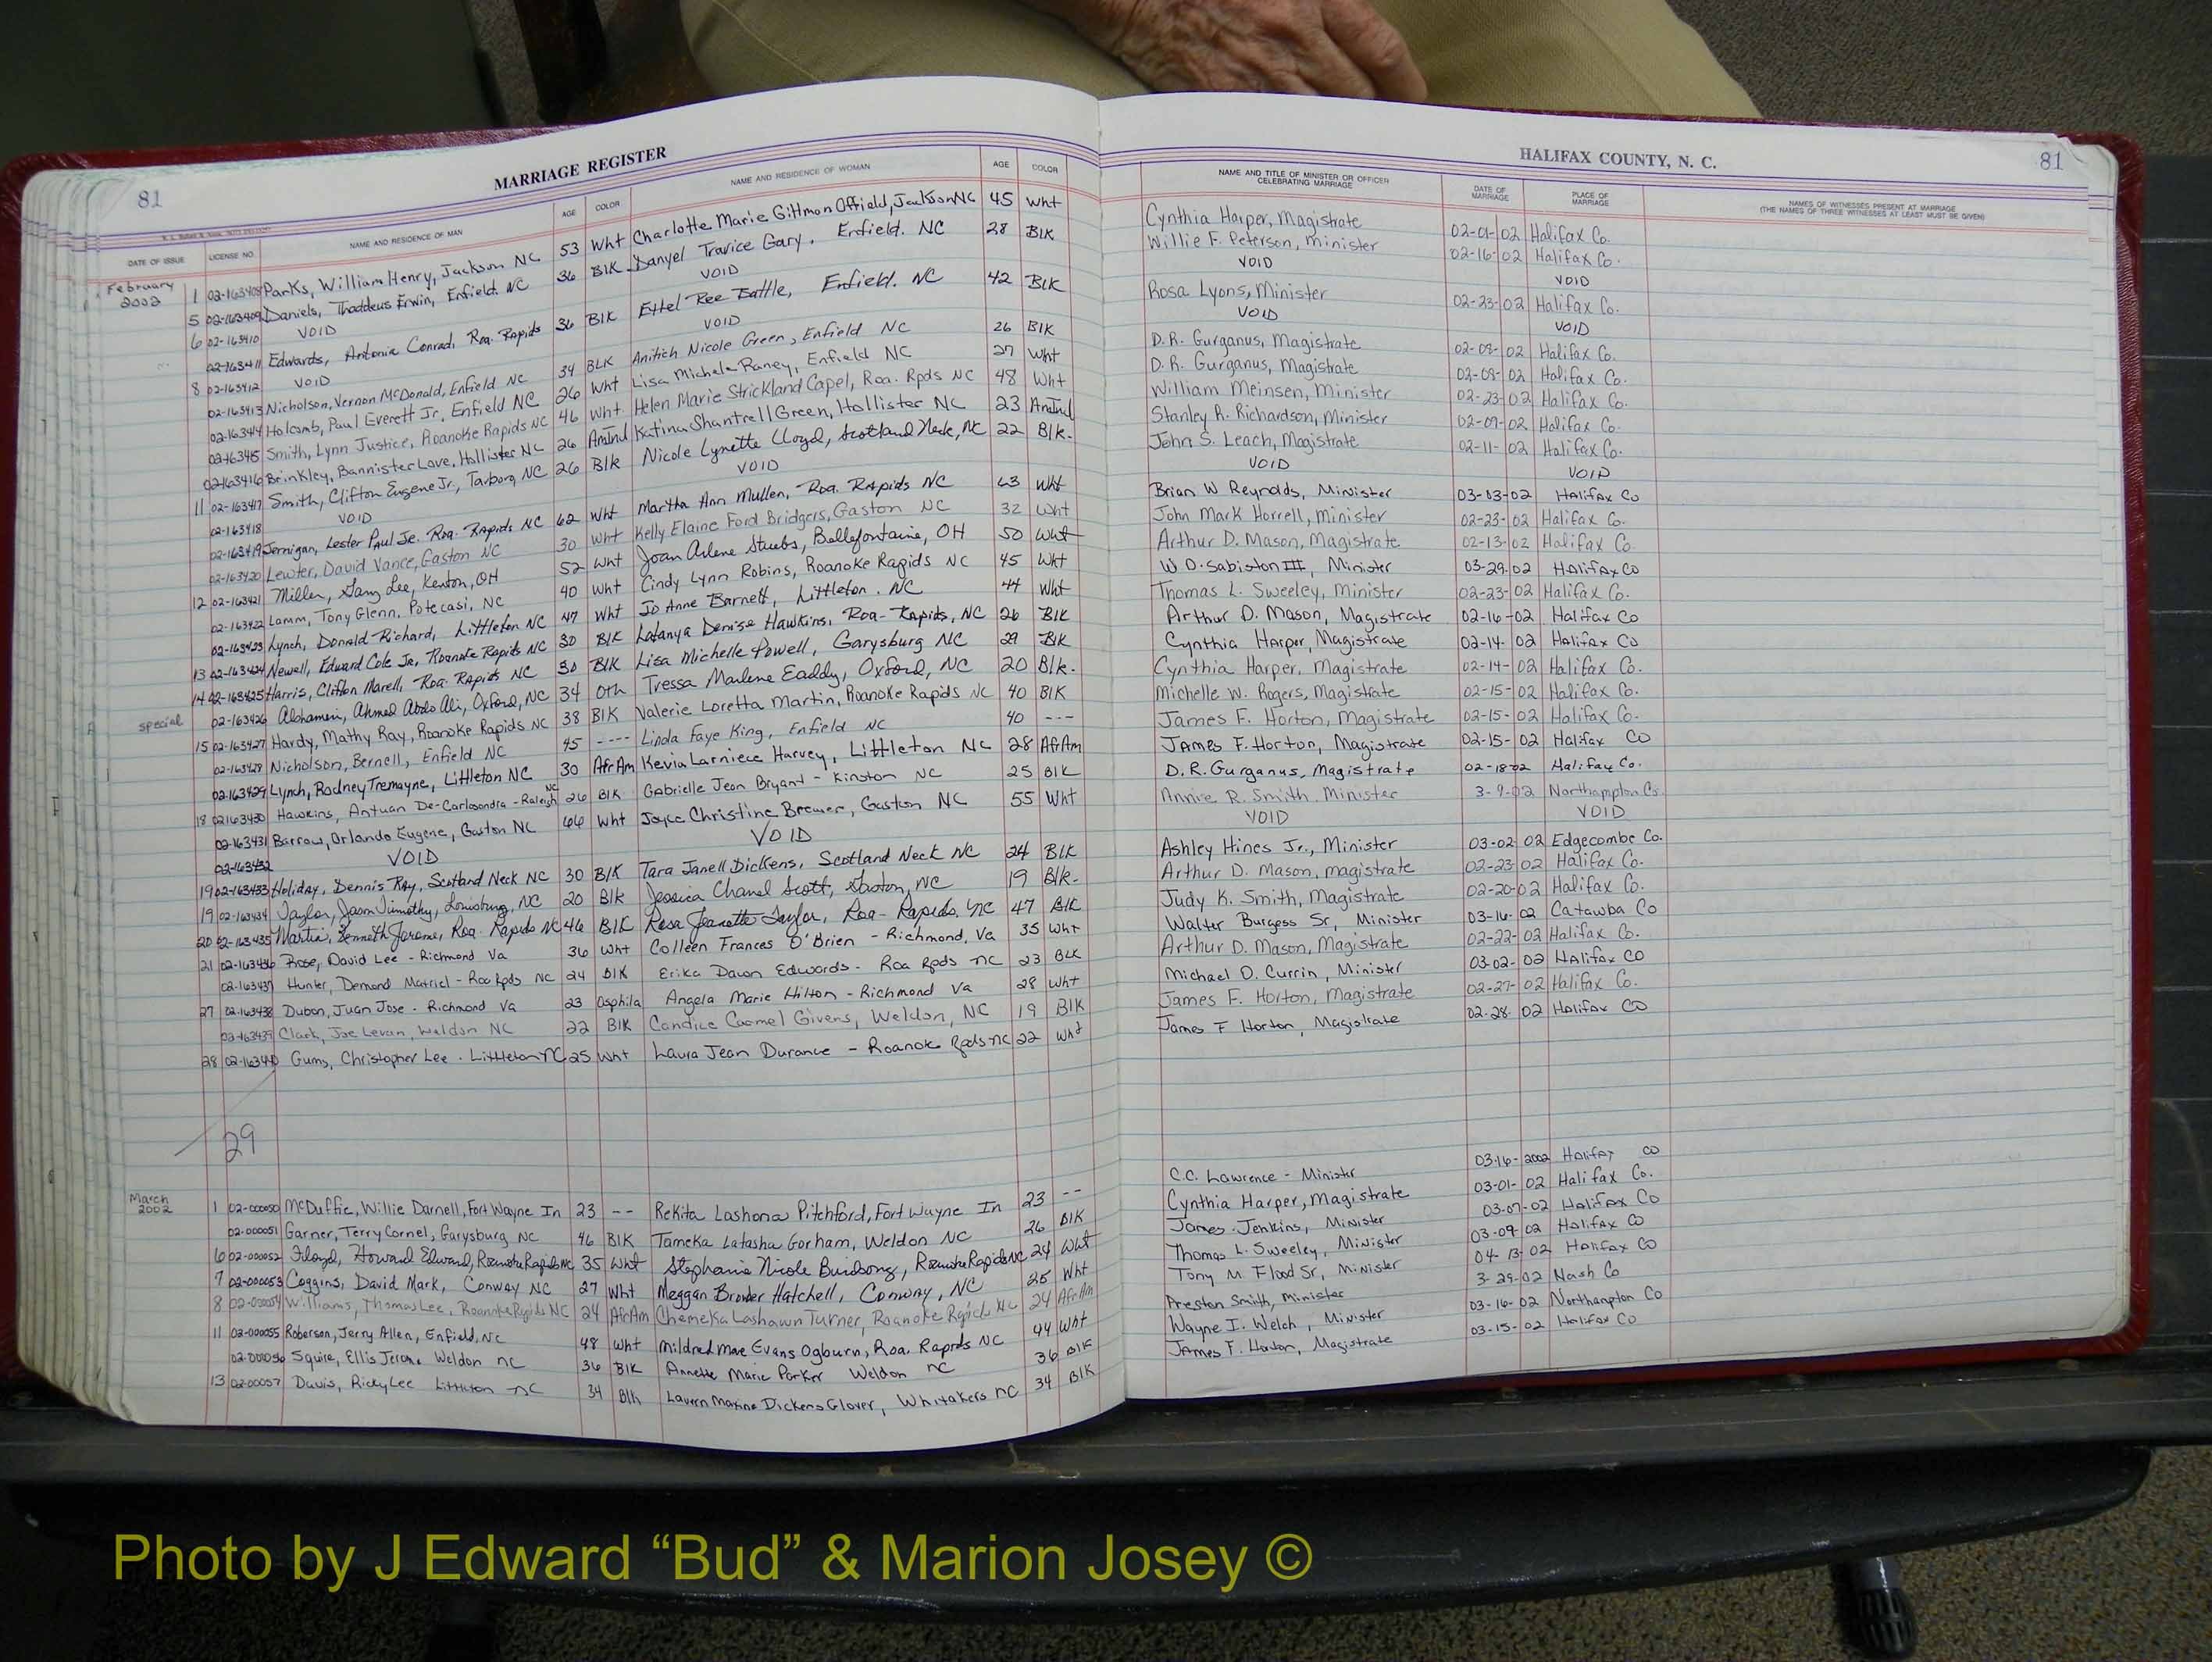 81
MARRIAGE REGISTER
DATE OF ISSUE LICENSE NO. NAME AND RESIDENCE OF MAN AGE COLOR NAME AND RESIDENCE OF WOMAN AGE COLOR
February 2002 1 02-163408 Parks, William Henry, Jackson NC 53 Wht Charlotte Marie Gittmon Offield, Jackson NC 45 Wht
5 02-163409 Daniels, Thaddeus Erwin, Enfield. NC 36 Blk Danyel Travice Gary. Enfield. NC 28 Blk
6 02-163410 VOID VOID
02-163411 Edwards, Antonia Conrad, Roa. Rapids 36 Blk Ethel Ree Battle, Enfield. NC 42 Blk
8 02-163412 VOID VOID
02-163413 Nicholson, Vernon McDonald, Enfield NC 34 BLK Anitich Nicole Green, Enfield NC 26 Blk
02-163414 Holcomb, Paul Everett Jr, Enfield NC 26 Wht Lisa Michele Raney, Enfield NC 27 Wht
02-163415 Smith, Lynn Justice, Roanoke Rapids NC 46 Wht Helen Marie Strickland Capel, Roa. Rpds NC 48 Wht
02-163416 Brinkley, Bannister Love, Hollister NC 26 AmInd Katina Shantrell Green, Hollister NC 23 AmInd
11 02-163417 Smith, Clifton Eugene Jr, Tarboro, NC 26 Blk Nicole Lynette Lloyd, Scotland Neck, NC 22 Blk.
02-163418 VOID VOID
02-163419 Jernigan, Lester Paul Jr. Roa. Rapids NC 62 Wht Martha Ann Mullen, Roa. Rapids NC 63 Wht
02-163420 Lewter, David Vance, Gaston NC 30 Wht Kelly Elaine Ford Bridgers, Gaston NC 32 Wht
12 02-163421 Miller, Gary Lee, Kenton, OH 52 Wht Joan Arlene Stubbs, Bellefontaine, OH 50 Wht
02-163422 Lamm, Tony Glenn, Potecasi, NC 40 Wht Cindy Lynn Robins, Roanoke Rapids NC 45 Wht
02-163423 Lynch, Donald Richard, Littleton NC 47 Wht Jo Anne Barnett, Littleton. NC 44 Wht
13 02-163424 Newell, Edward Cole Jr, Roanoke Rapids NC 30 Blk Latanya Denise Hawkins, Roa- Rapids, NC 26 Blk
14 02-163425 Harris, Clifton Marell, Roa. Rapids NC 30 Blk Lisa Michelle Powell, Garysburg NC 29 Blk
special 02-163426 Alshameri, Ahmed Abdo Ali, Oxford, NC 34 Oth Tressa Marlene Eaddy, Oxford, NC 20 Blk.
15 02-163427 Hardy, Mathy Ray, Roanoke Rapids NC 38 Blk Valerie Loretta Martin, Roanoke Rapids NC 40 Blk
02-163428 Nicholson, Bernell, Enfield NC 45 ---- Linda Faye King, Enfield NC 40 ---
02-163429 Lynch, Rodney Tremayne, Littleton NC 30 AfrAm Kevia Larniece Harvey, Littleton NC 28 AfrAm
18 02163430 Hawkins, Antuan De-Carlosondra - Raleigh NC 26 Blk Gabrielle Jean Bryant - Kinston NC 25 Blk
02-163431 Barrow, Orlando Eugene, Gaston NC 66 Wht Joyce Christine Brewer, Gaston NC 55 Wht
02-163432 VOID VOID
19 02-163433 Holiday, Dennis Ray, Scotland Neck NC 30 Blk Tara Janell Dickens, Scotland Neck NC 24 Blk
19 02-163434 Taylor, Jason Timothy, Louisburg, NC 20 Blk Jessica Chanel Scott, Gaston, NC 19 Blk-
20 02-163435 Martin, Kenneth Jerome, Roa. Rapids NC 46 Blk Rosa Jeanette Taylor, Roa- Rapids, NC 47 Blk
21 02-163436 Rose, David Lee - Richmond Va 36 Wht Colleen Frances O'Brien - Richmond, Va 35 Wht
02-163437 Hunter, Demond Matriel - Roa Rpds NC 24 Blk Erika Dawn Edwards - Roa Rpds NC 23 BLK
27 02-163438 Dubon, Juan Jose - Richmond Va 23 Angela Marie Hilton - Richmond Va 28 Wht
02-163439 Clark, Joe Levan, Weldon NC 22 Blk Candice Carmel Givens, Weldon, NC 19 Blk
28 02-163440 Gums, Christopher Lee. Littleton NC 25 Wht Laura Jean Durance - Roanoke Rpds NC 22 Wht
29
March 2002 1 02-000050 McDuffie, Willie Darnell, Fort Wayne In 23 -- Rekita Lashona Pitchford, Fort Wayne In 23 --
02-000051 Garner, Terry Cornel, Garysburg NC 46 Blk Tameka Latasha Gorham, Weldon NC 26 Blk
6 02-000052 Floyd, Howard Edward, Roanoke Rapids NC 35 Wht Stephanie Nicole Burdsong, Roanoke Rapids NC 24 Wht
7 02-000053 Coggins, David Mark, Conway NC 27 Wht Meggan Browder Hatchell, Conway, NC 25 Wht
8 02-000054 Williams, Thomas Lee, Roanoke Rapids NC 24 AfrAm Chemeka Lashawn Turner, Roanoke Rapids NC 24 AfrAm
11 02-000055 Roberson, Jerry Allen, Enfield, NC 48 Wht Mildred Mae Evans Ogburn, Roa. Rapids NC 44 Wht
02-000056 Squire, Ellis Jerome Weldon NC 36 Blk Annette Marie Parker Weldon NC 36 Blk
13 02-00057 Davis, Ricky Lee Littleton NC 34 Blk Lavern Maxine Dickens Glover, Whitakers NC 34 Blk
HALIFAX COUNTY, N. C.
81
NAME AND TITLE OF MINISTER OR OFFICER CELEBRATING MARRIAGE DATE OF MARRIAGE PLACE OF MARRIAGE NAMES OF WITNESSES PRESENT AT MARRIAGE
(THE NAMES OF THREE WITNESSES AT LEAST MUST BE GIVEN)
Cynthia Harper, Magistrate 02-01-02 Halifax Co.
Willie F. Peterson, minister 02-16-02 Halifax Co.
VOID VOID
Rosa Lyons, Minister 02-23-02 Halifax Co.
VOID VOID
D.R. Gurganus, Magistrate 02-08-02 Halifax Co.
D.R. Gurganus, Magistrate 02-08-02 Halifax Co.
William Meinsen, Minister 02-23-02 Halifax Co.
Stanley R. Richardson, Minister 02-09-02 Halifax Co.
John S. Leach, Magistrate 02-11-02 Halifax Co.
VOID VOID
Brian W Reynolds, Minister 03-03-02 Halifax Co
John Mark Horrell, Minister 02-23-02 Halifax Co.
Arthur D. Mason, Magistrate 02-13-02 Halifax Co.
W.O. Sabiston III, Minister 03-29-02 Halifax Co
Thomas L. Sweeley, Minister 02-23-02 Halifax Co.
Arthur D. Mason, Magistrate 02-16-02 Halifax Co
Cynthia Harper, Magistrate 02-14-02 Halifax Co
Cynthia Harper, Magistrate 02-14-02 Halifax Co.
Michelle W. Rogers, Magistrate 02-15-02 Halifax Co.
James F. Horton, Magistrate 02-15-02 Halifax Co.
James F. Horton, Magistrate 02-15-02 Halifax Co
D.R. Gurganus, Magistrate 02-18-02 Halifax Co.
Annie R. Smith, Minister 3-9-02 Northampton Co.
VOID VOID
Ashley Hines Jr., Minister 03-02-02 Edgecombe Co.
Arthur D. Mason, magistrate 02-23-02 Halifax Co.
Judy K. Smith, Magistrate 02-20-02 Halifax Co.
Walter Burgess Sr, Minister 03-16-02 Catawba Co
Arthur D. Mason, Magistrate 02-22-02 Halifax Co.
Michael D. Currin, Minister 03-02-02 Halifax Co
James F. Horton, Magistrate 02-27-02 Halifax Co.
James F Horton, Magistrate 02-28-02 Halifax Co
C.C. Lawrence - Minister 03-16-2002 Halifax Co
Cynthia Harper, Magistrate 03-01-02 Halifax Co.
James Jenkins, Minister 03-07-02 Halifax Co
Thomas L. Sweeley, Minister 03-09-02 Halifax Co
Tony M Flood Sr, Minister 04-13-02 Halifax Co
Preston Smith, Minister 3-29-02 Nash Co
Wayne I. Welch, Minister 03-16-02 Northampton Co
James F. Horton, Magistrate 03-15-02 Halifax Co
Photo by J Edward “Bud” & Marion Josey ©